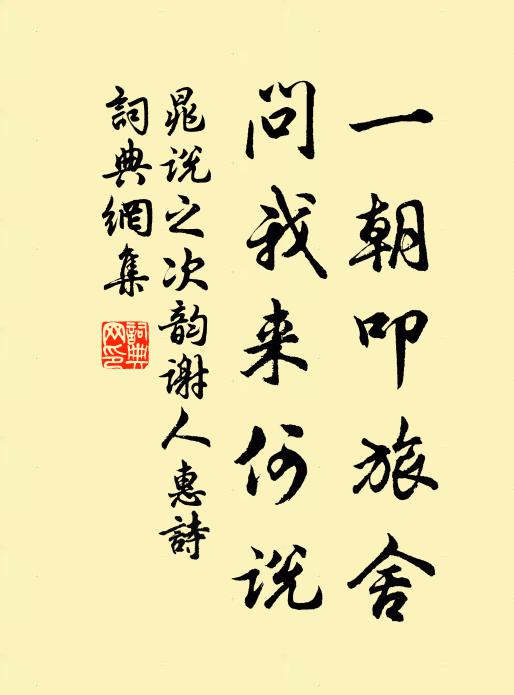 一朝叩旅舍
問我来何説
晁说之次韵谢人惠詩
詞典網集
詞典網印